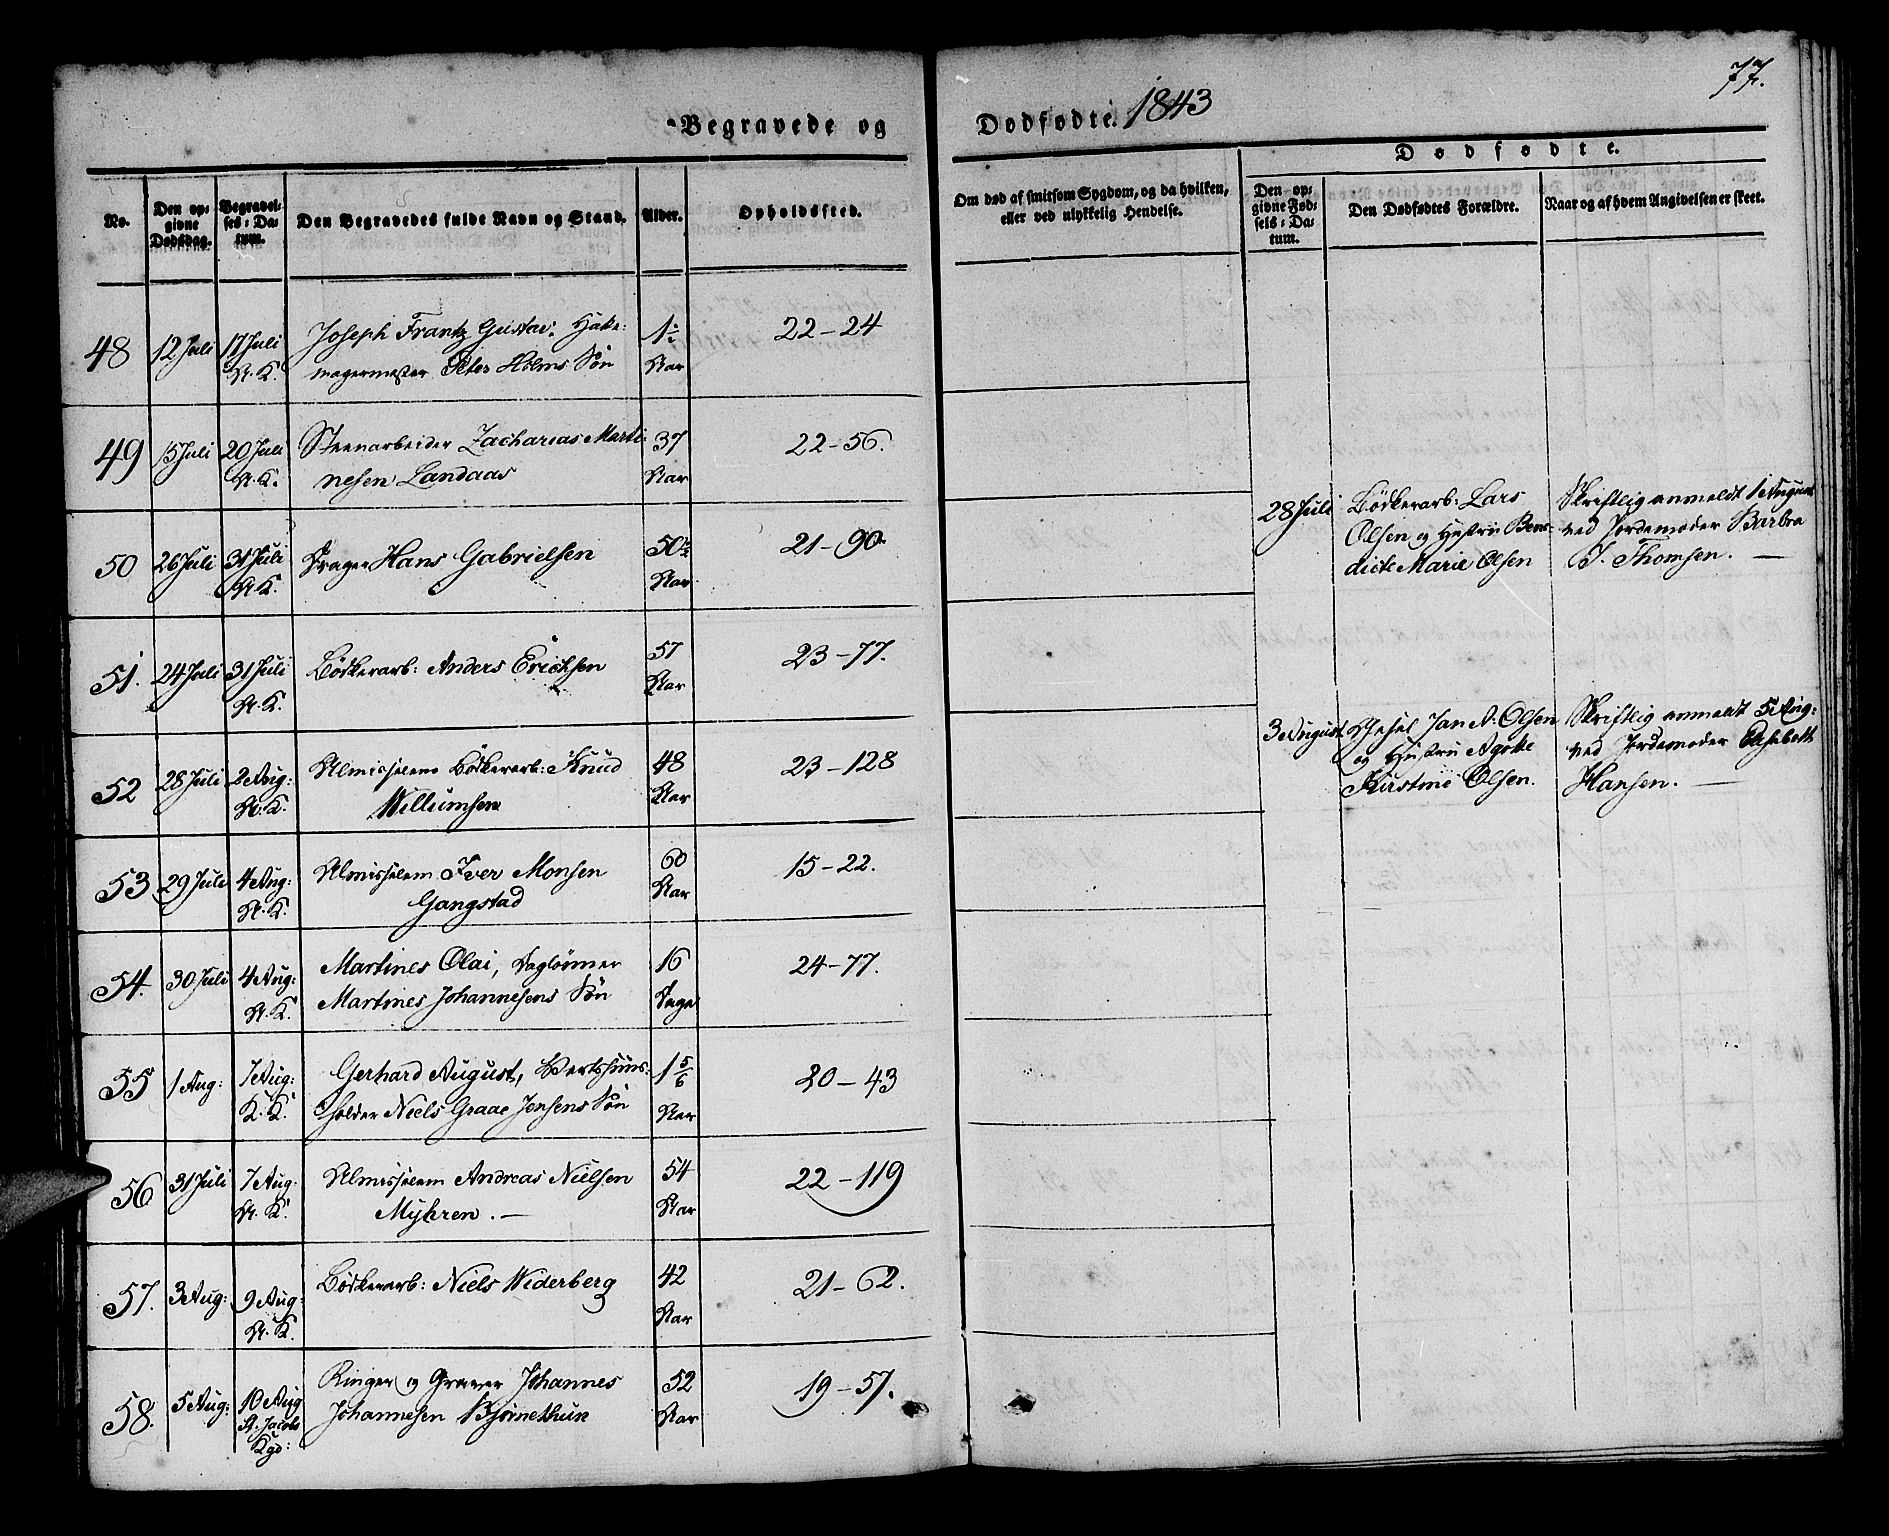 77.
Begravede og Dødfødte. 1843
Dødfødte.
No.
Den op-
givne
Dødsdag.
Begravel-
ses-Da-
tum.
Den Begravedes fulde Navn og Stand.
Alder.
Opholdssted.
Om død af smitsom Sygdom, og da hvilken,
eller ved ulykkelig Hendelse.
Den op-
givne Fød-
sels-Da-
tum.
Den Dødfødtes Forældre.
Naar og af hvem Angivelsen er skeet.
48 12 Juli 17 Juli Joseph Frantz Gustav: Hatte- 22-24
magermester Peter Holms Søn Aar
49 15 Juli 20 Juli Steenarbeider Zacharias Marti- 37 22-56.
nesen Landaas Aar
50 26 Juli 31 Juli Drager Hans Gabrielsen 21-90
Aar
51. 24 Juli 31 Juli Bødkerarb: Anders Erichsen 57 23-77.
Aar
52 28 Juli 2 Aug: Almisselem Bødkerarb: Knud 48 23-128
Willumsen Aar
53 29 Juli 4 Aug: Almisselem Iver Monsen 60 15-22.
Gangstad Aar
54. 30 Juli 4 Aug: Martines Olai, Daglønner 16 24-77.
Martines Johannesens Søn Dage
55 1 Aug: 7 Aug: Gerhard August, Vertshuus- 1 5/6 20-43
K. K. holder Niels Graae Jensens Søn Aar
56 31 Juli 7 Aug: Almisselem Andreas Nielsen 54 22-119
Myhren. — Aar
57. 3 Aug: 9 Aug: Bødkerarb: Niels Widerberg 42 21-62.
Aar
58. 5 Aug: 10 Aug Ringer og Graver Johannes 52 19-57.
St. Jacobs Johannesen Bjørnethun Aar
Kgd:
28 Juli Bødkerarb: Lars Skriftlig anmeldt 1 August
Olsen og Hustru Bene- ved Jordemoder Barbra
dicte Marie Olsen J. Thomsen. —
3 August Jan A. Olsen Skriftlig anmeldt 5 Aug:
og Hustru Agathe ved Jordemoder Elisabeth
Kirstine Olsen. Hansen. —